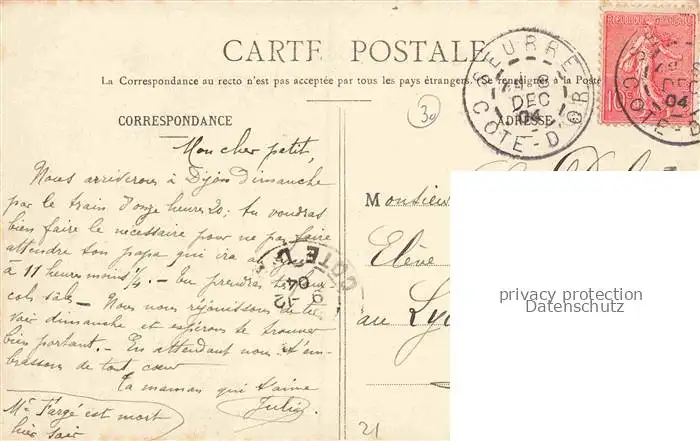 REPUBLIQUE FRANÇAISE
10c
CARTE POSTALE
SEURRE
8
DEC
04
COTE-D'OR
La Correspondance au recto n'est pas acceptée par tous les pays étrangers. (Se renseigner à la Poste
CORRESPONDANCE
30
ADRESSE
Mon cher petit,
Nous arriverons à Dijon Dimanche
par le train d'onze heures 20; tu voudras
bien faire le nécessaire pour ne pas faire
attendre ton papa qui ira au
à 11 heures moins 1/4. - Tu prendras
cols sales - Nous nous réjouissons de te
voir dimanche et espérons te trouver
bien portant. - En attendant nous t'em-
brassons de tout cœur
Ta maman qui t'aime
Julia
Mr Fargé est mort
hier soir
COTE D
9-12
04
Monsieu
Elève
au Ly
21
privacy protection
Datenschutz